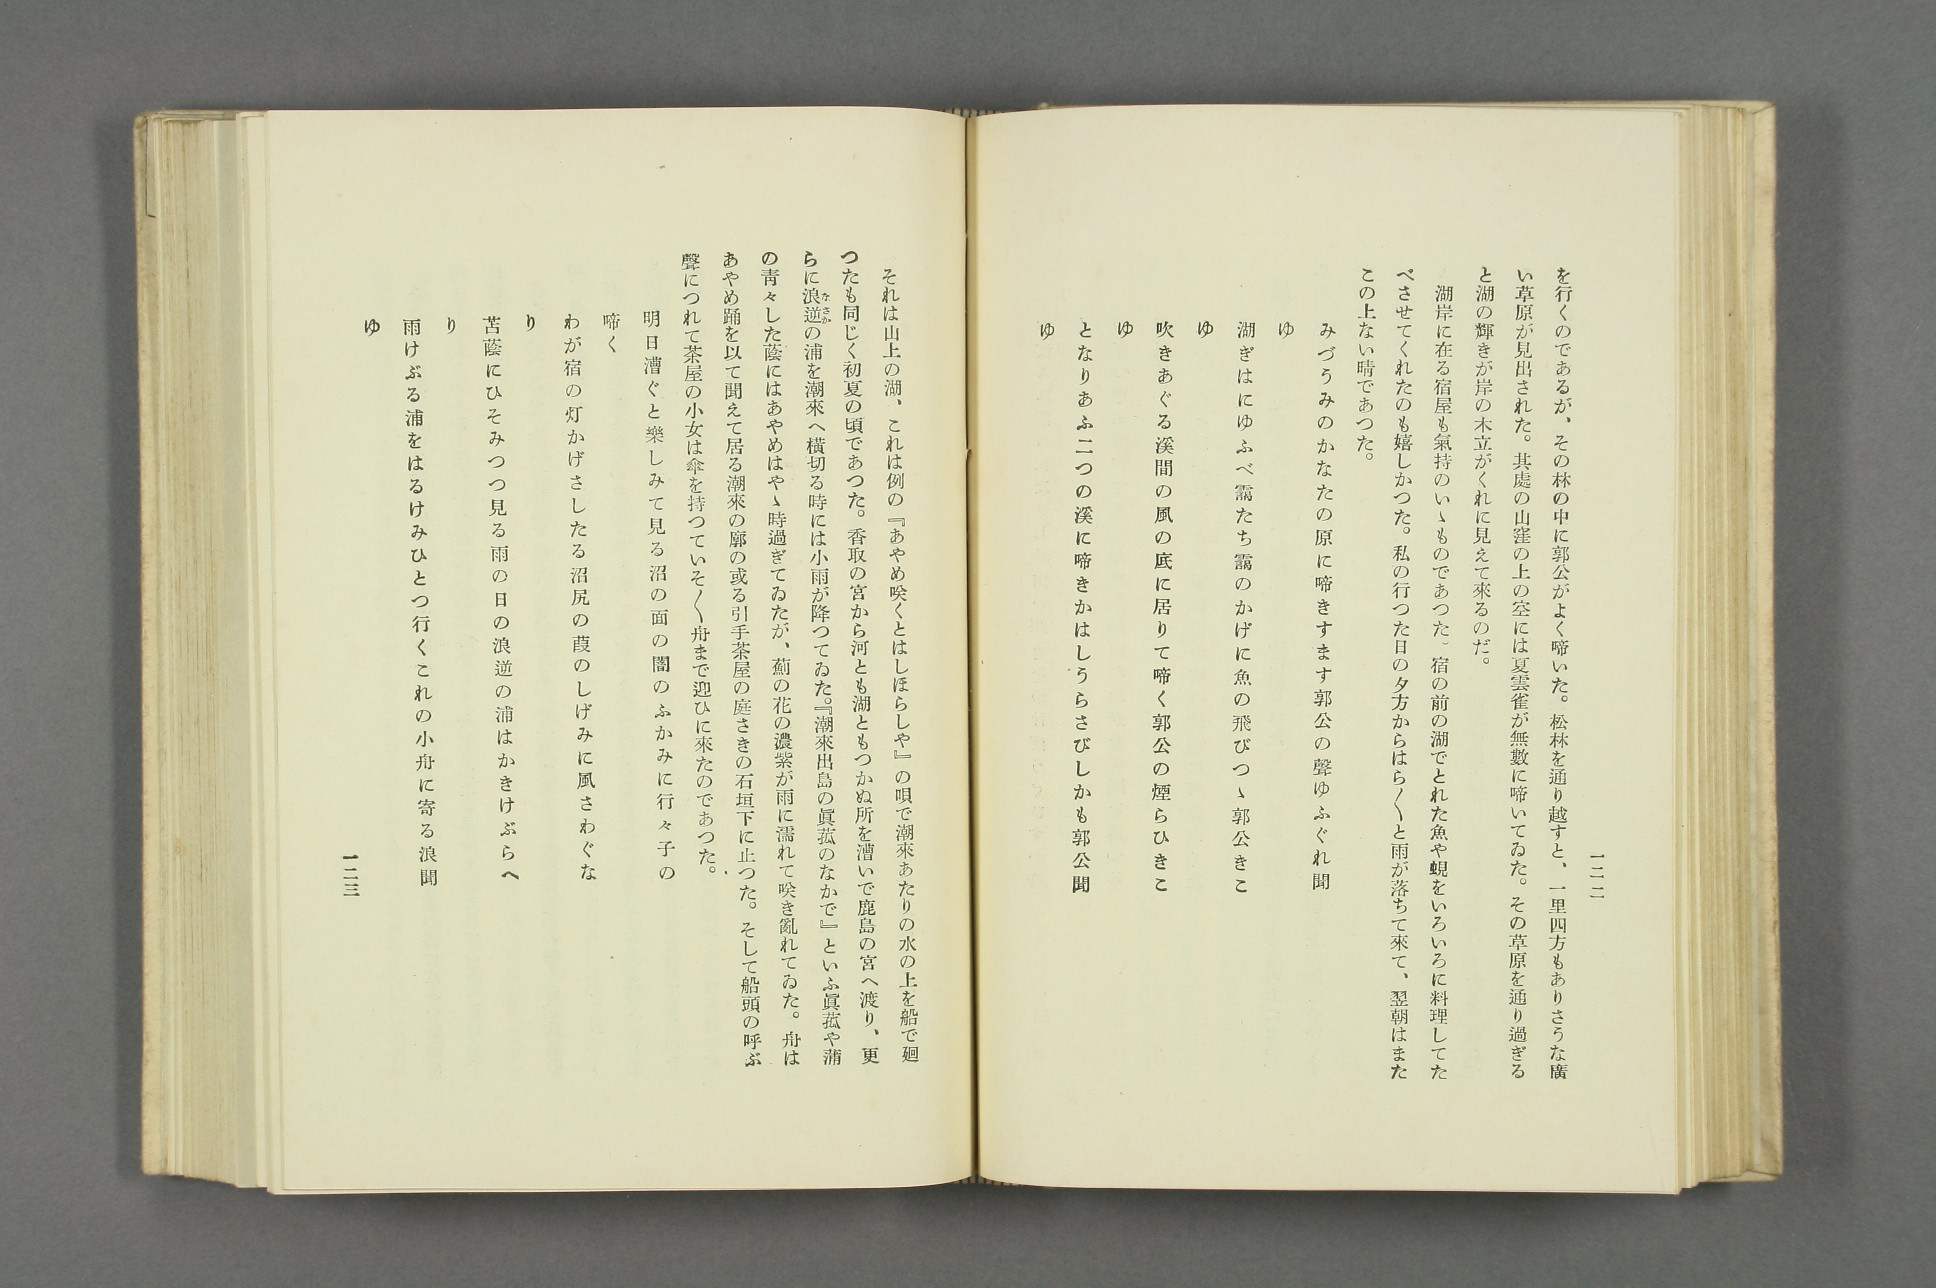 一二二
を行くのであるが、その林の中に郭公がよく啼いた。松林を通り越すと、一里四方もありさうな廣
い草原が見出された。其處の山窪の上の空には夏雲雀が無數に啼いてゐた。その草原を通り過ぎる
と湖の輝きが岸の木立がくれに見えて來るのだ。
湖岸に在る宿屋も氣持のいゝものであつた。宿の前の湖でとれた魚や蜆をいろいろに料理してた
べさせてくれたのも嬉しかつた。私の行つた日の夕方からはら〳〵と雨が落ちて來て、翌朝はまた
この上ない晴であつた。
みづうみのかなたの原に啼きすます郭公の聲ゆふぐれ聞
ゆ
湖ぎはにゆふべ靄たち靄のかげに魚の飛びつゝ郭公きこ
ゆ
吹きあぐる溪間の風の底に居りて啼く郭公の煙らひきこ
ゆ
となりあふ二つの溪に啼きかはしうらさびしかも郭公聞
ゆ
それは山上の湖、これは例の『あやめ咲くとはしほらしや』の唄で潮來あたりの水の上を船で廻
つたも同じく初夏の頃であつた。香取の宮から河とも湖ともつかぬ所を漕いで鹿島の宮へ渡り、更
らに浪逆なさかの浦を潮來へ横切る時には小雨が降つてゐた。『潮來出島の眞菰のなかで』といふ眞菰や蒲
の靑々した蔭にはあやめはやゝ時過ぎてゐたが、薊の花の濃紫が雨に濡れて咲き亂れてゐた。舟は
あやめ踊を以て聞えて居る潮來の廓の或る引手茶屋の庭さきの石垣下に止つた。そして船頭の呼ぶ
聲につれて茶屋の小女は傘を持つていそ〳〵舟まで迎ひに來たのであつた。
明日漕ぐと樂しみて見る沼の面の闇のふかみに行々子の
啼く
わが宿の灯かげさしたる沼尻の葭のしげみに風さわぐな
り
苫蔭にひそみつつ見る雨の日の浪逆の浦はかきけぶらへ
り
雨けぶる浦をはるけみひとつ行くこれの小舟に寄る浪聞
ゆ
一二三